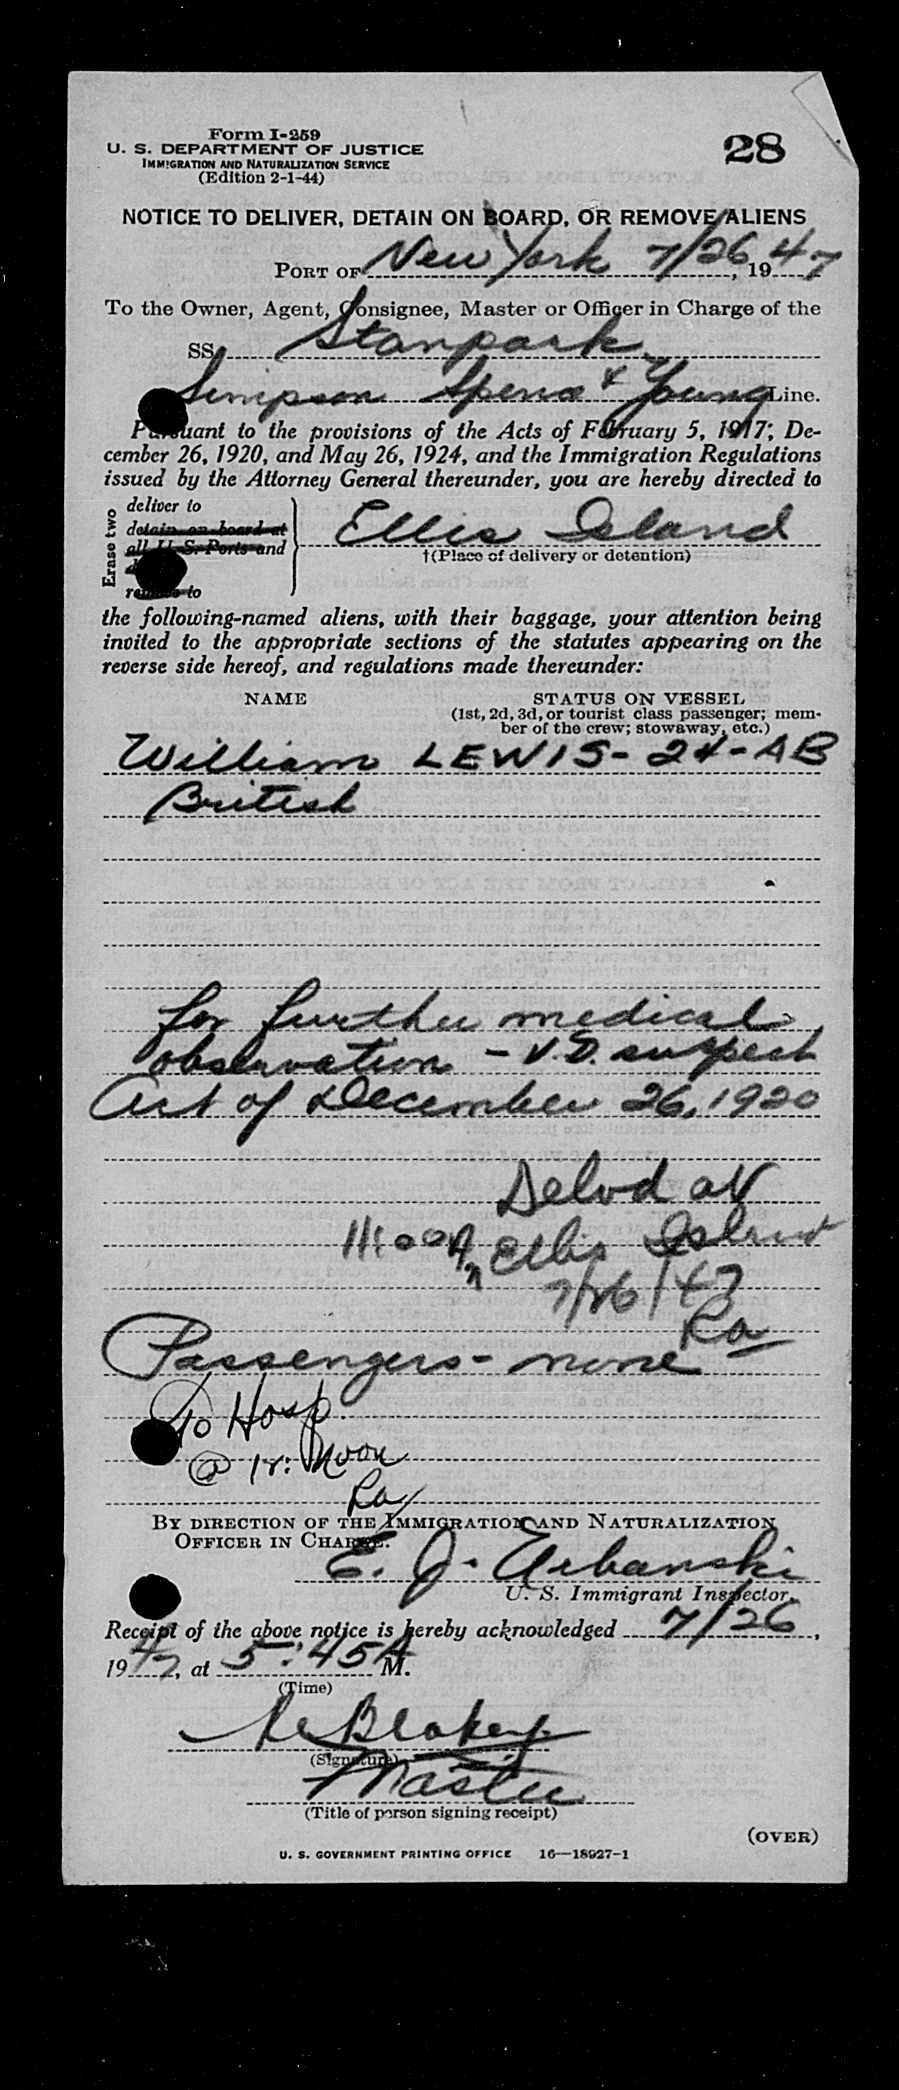 Form I-259
28
U. S. DEPARTMENT OF JUSTICE
IMMIGRATION AND NATURALIZATION SERVICE
(Edition 2-1-44)
NOTICE TO DELIVER, DETAIN ON BOARD, OR REMOVE ALIENS
PORT OF New York 7/26, 1947
To the Owner, Agent, Consignee, Master or Officer in Charge of the
SS Stanpark
Simpson Spence & Young Line.
Pursuant to the provisions of the Acts of February 5, 1917; De-
cember 26, 1920, and May 26, 1924, and the Immigration Regulations
issued by the Attorney General thereunder, you are hereby directed to
Erase two
deliver to
detain on board at
all U. S. Ports and
remove to
Ellis Island
†(Place of delivery or detention)
the following-named aliens, with their baggage, your attention being
invited to the appropriate sections of the statutes appearing on the
reverse side hereof, and regulations made thereunder:
NAME STATUS ON VESSEL
(1st, 2d, 3d, or tourist class passenger; mem-
ber of the crew; stowaway, etc.)
William LEWIS - 24 - AB
British
for further medical
observation - V.D. suspect
Act of December 26, 1920
Delvd at
11:00 A m Ellis Island
7/26/47
Ra
Passengers - none
To Hosp.
@ 12: Noon
Ra
BY DIRECTION OF THE IMMIGRATION AND NATURALIZATION
OFFICER IN CHARGE.
E. J. Urbanski
U. S. Immigrant Inspector.
Receipt of the above notice is hereby acknowledged 7/26,
1947, at 5:45 A M.
(Time)
Blakey
(Signature)
Master
(Title of person signing receipt)
(OVER)
U. S. GOVERNMENT PRINTING OFFICE 16—18927-1